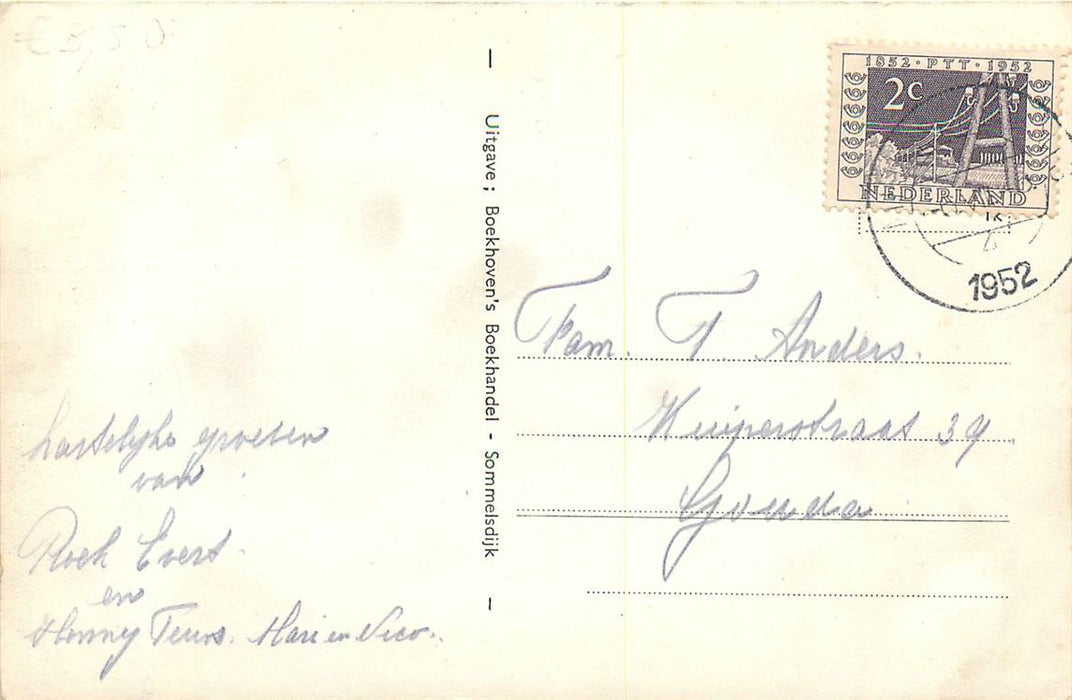 € 3,50
1852 · PTT · 1952
2c
NEDERLAND
1952
Uitgave ; Boekhoven's Boekhandel - Sommelsdijk
Fam. T. Anders.
Kuiperstraat 39
Gouda
hartelijke groeten
van
Evert
en
Henny Teuns. Marien Nico.